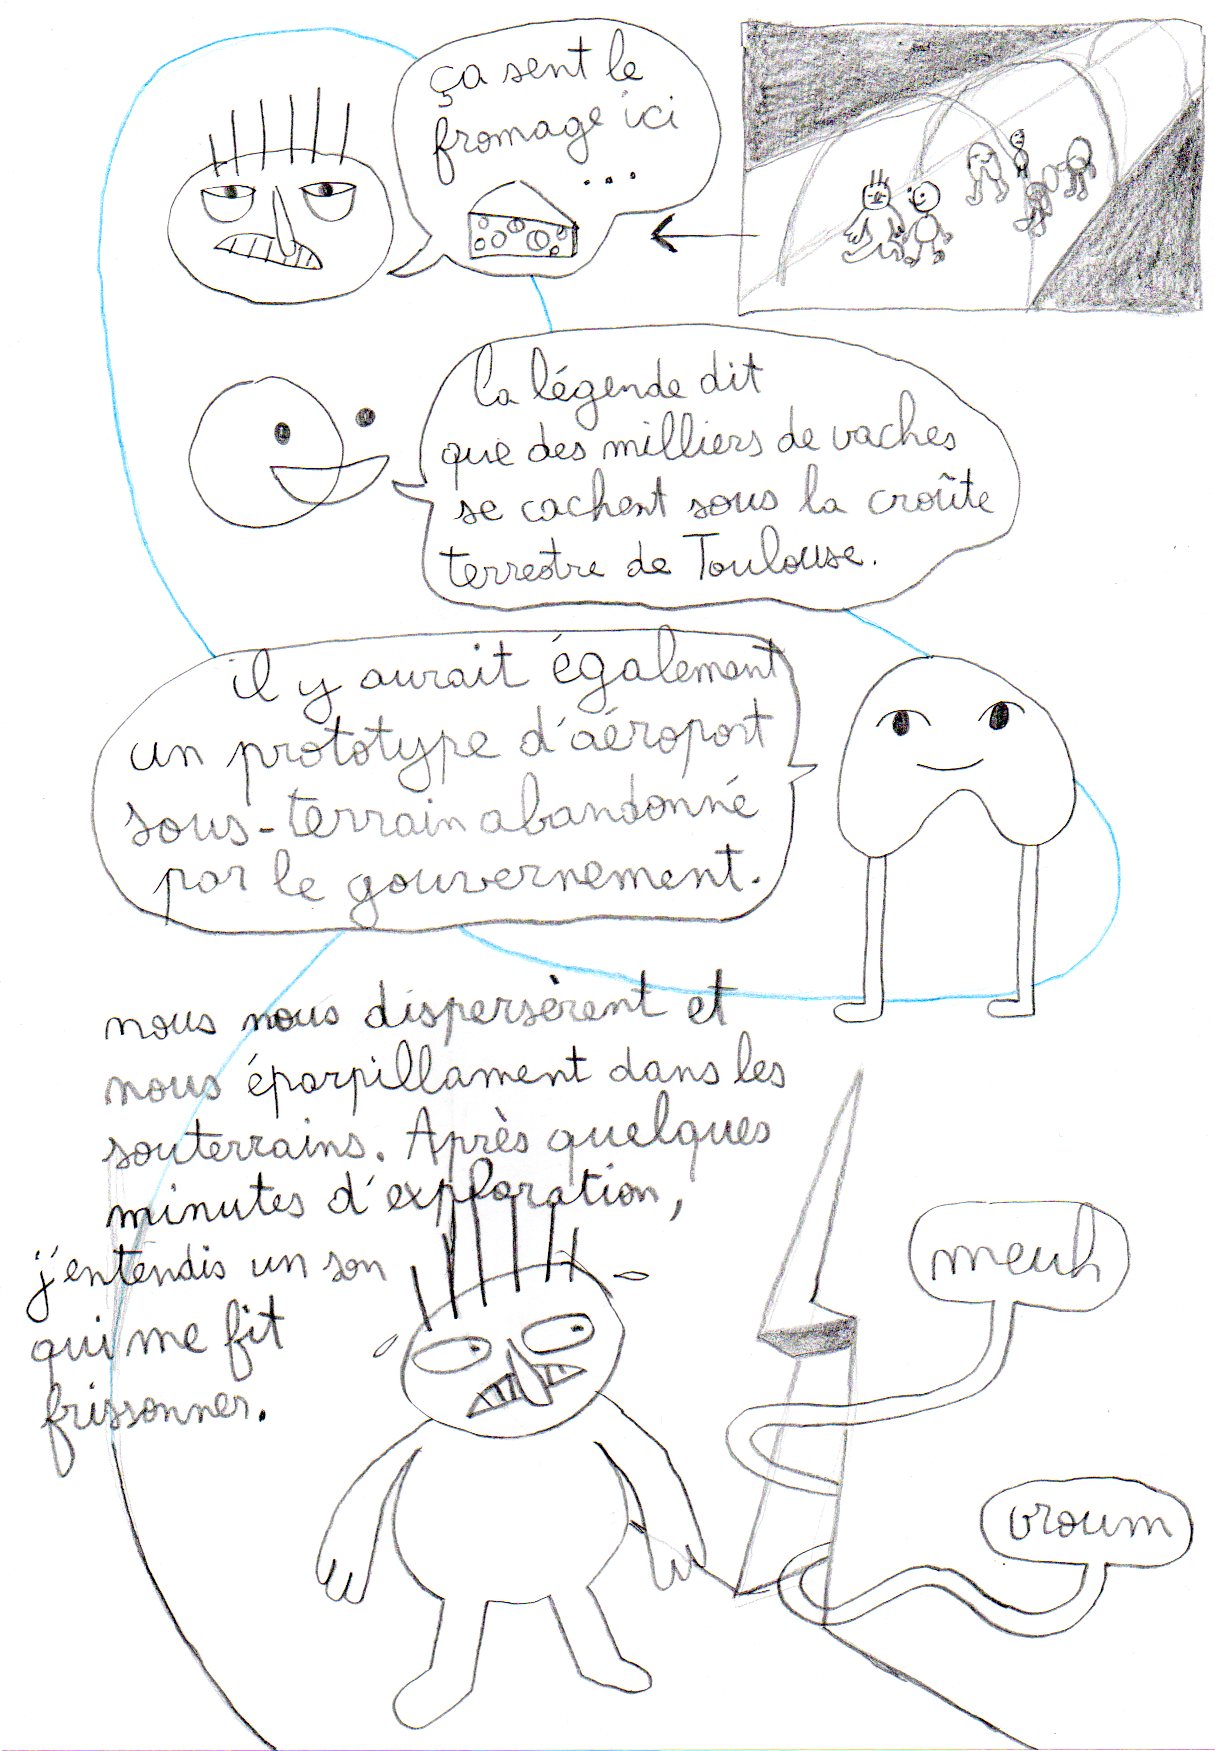 ça sent le
fromage ici
...
la légende dit
que des milliers de vaches
se cachent sous la croûte
terrestre de Toulouse.
il y aurait également
un prototype d'aéroport
sous-terrain abandonné
par le gouvernement.
nous nous dispersèrent et
nous éparpillament dans les
souterrains. Après quelques
minutes d'exploration,
j'entendis un son
qui me fit
frissonner.
meuh
vroum